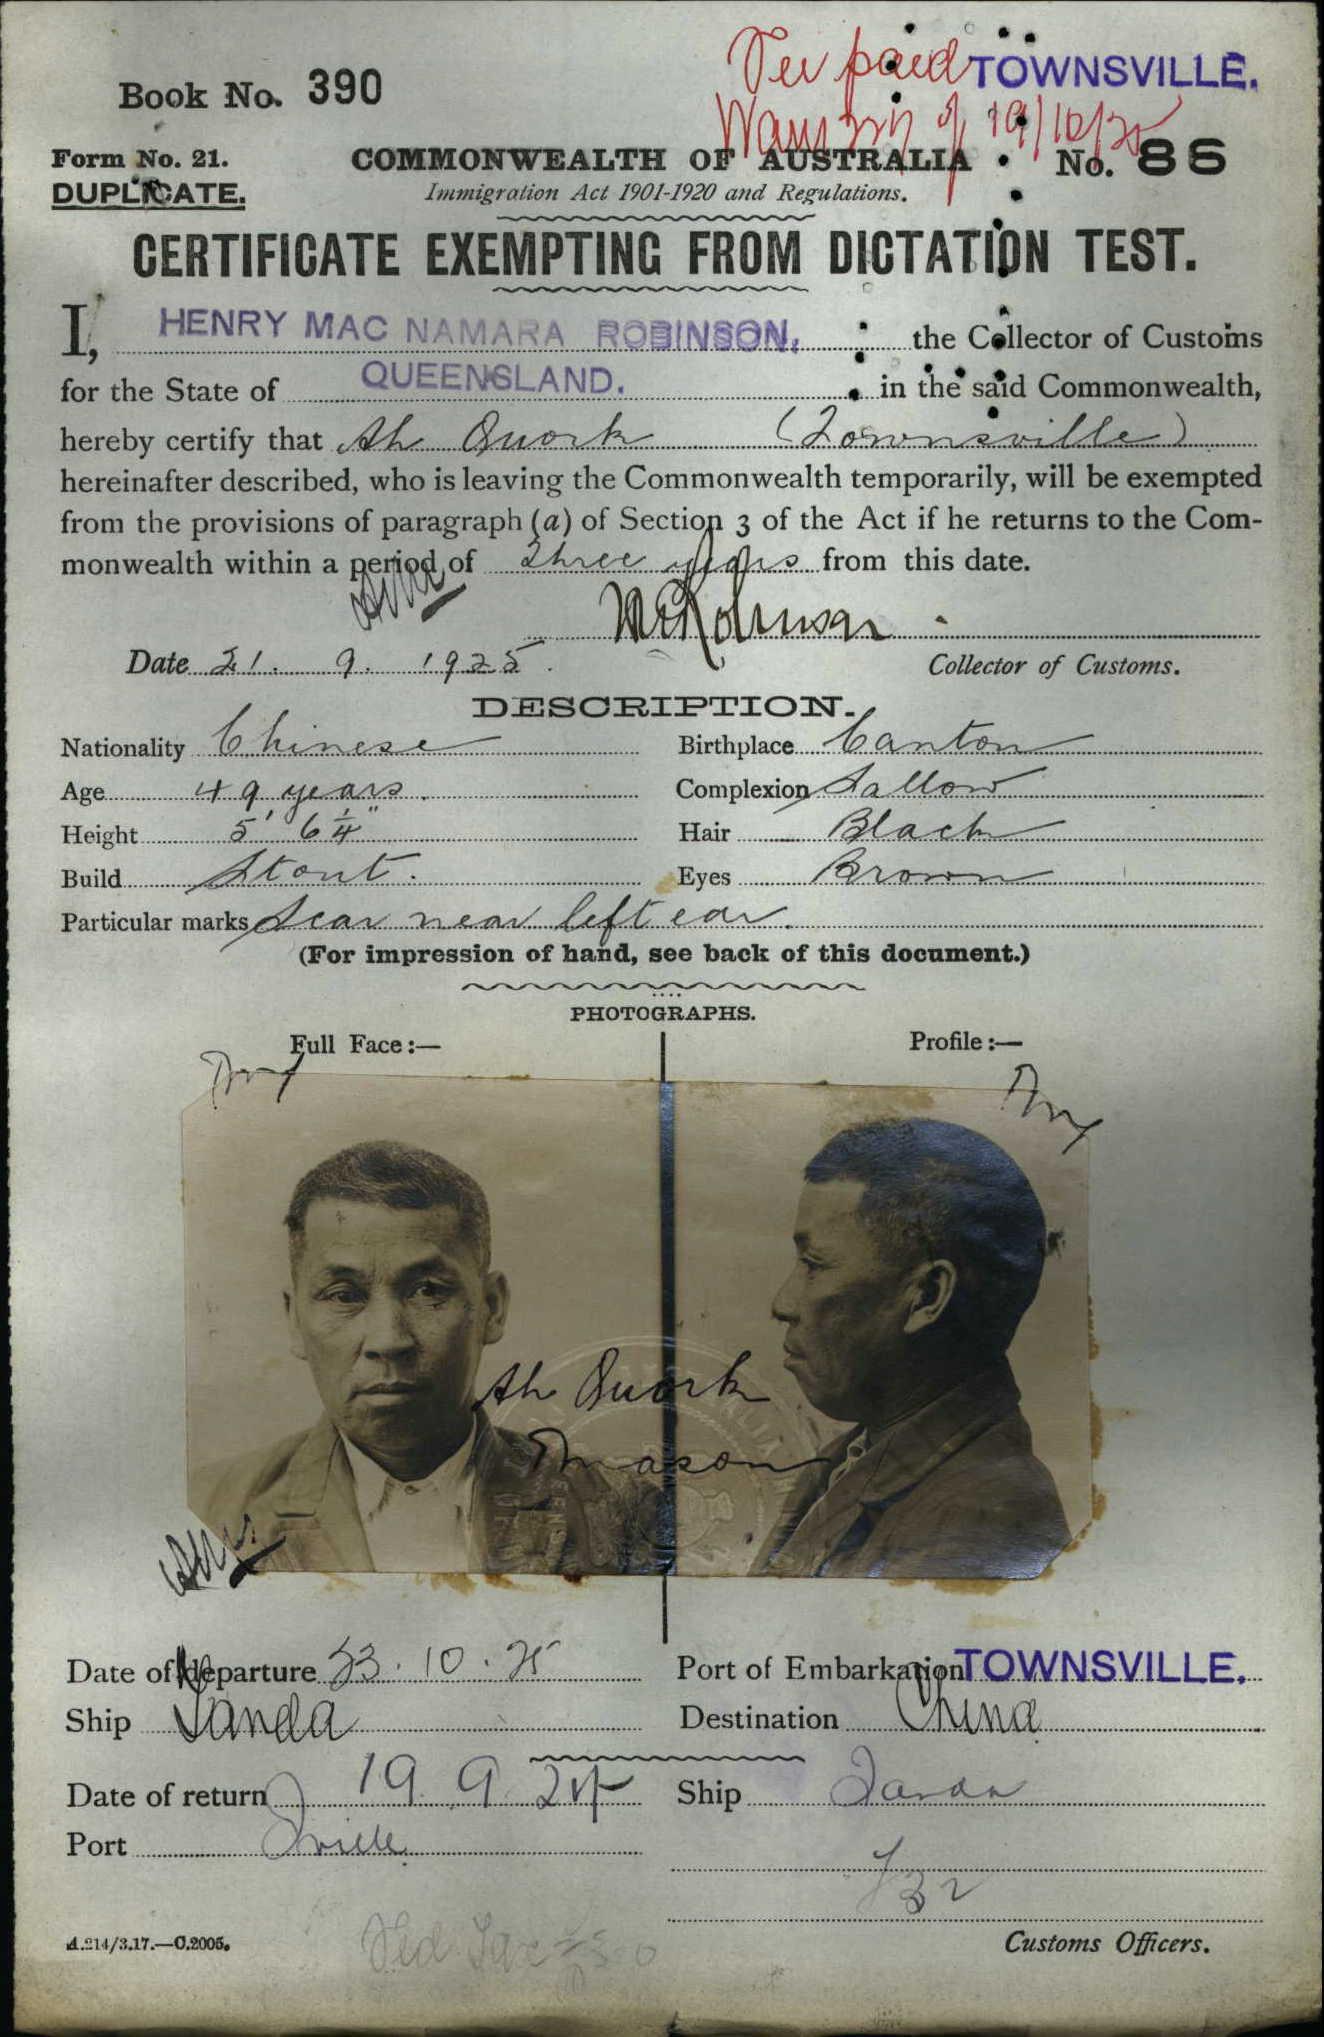 Fee paid TOWNSVILLE.
Book No. 390
19/10/25
Form No. 21. COMMONWEALTH OF AUSTRALIA No. 86
DUPLICATE. Immigration Act 1901-1920 and Regulations.
CERTIFICATE EXEMPTING FROM DICTATION TEST.
I, HENRY MAC NAMARA ROBINSON, the Collector of Customs
for the State of QUEENSLAND. in the said Commonwealth,
hereby certify that Ah Quork (Townsville)
hereinafter described, who is leaving the Commonwealth temporarily, will be exempted
from the provisions of paragraph (a) of Section 3 of the Act if he returns to the Com-
monwealth within a period of three years from this date.
Date 21. 9. 1925. Collector of Customs.
DESCRIPTION.
Nationality Chinese Birthplace Canton
Age 49 years. Complexion Sallow
Height 5' 6¼" Hair Black
Build Stout. Eyes Brown
Particular marks Scar near left ear.
(For impression of hand, see back of this document.)
PHOTOGRAPHS.
Full Face:— Profile:—
Ah Quork
Date of departure 23.10.25 Port of Embarkation TOWNSVILLE.
Ship Tanda Destination China
Date of return 19 9 Ship Tanda
Port Tville
A.214/3.17.—C.2005. Customs Officers.